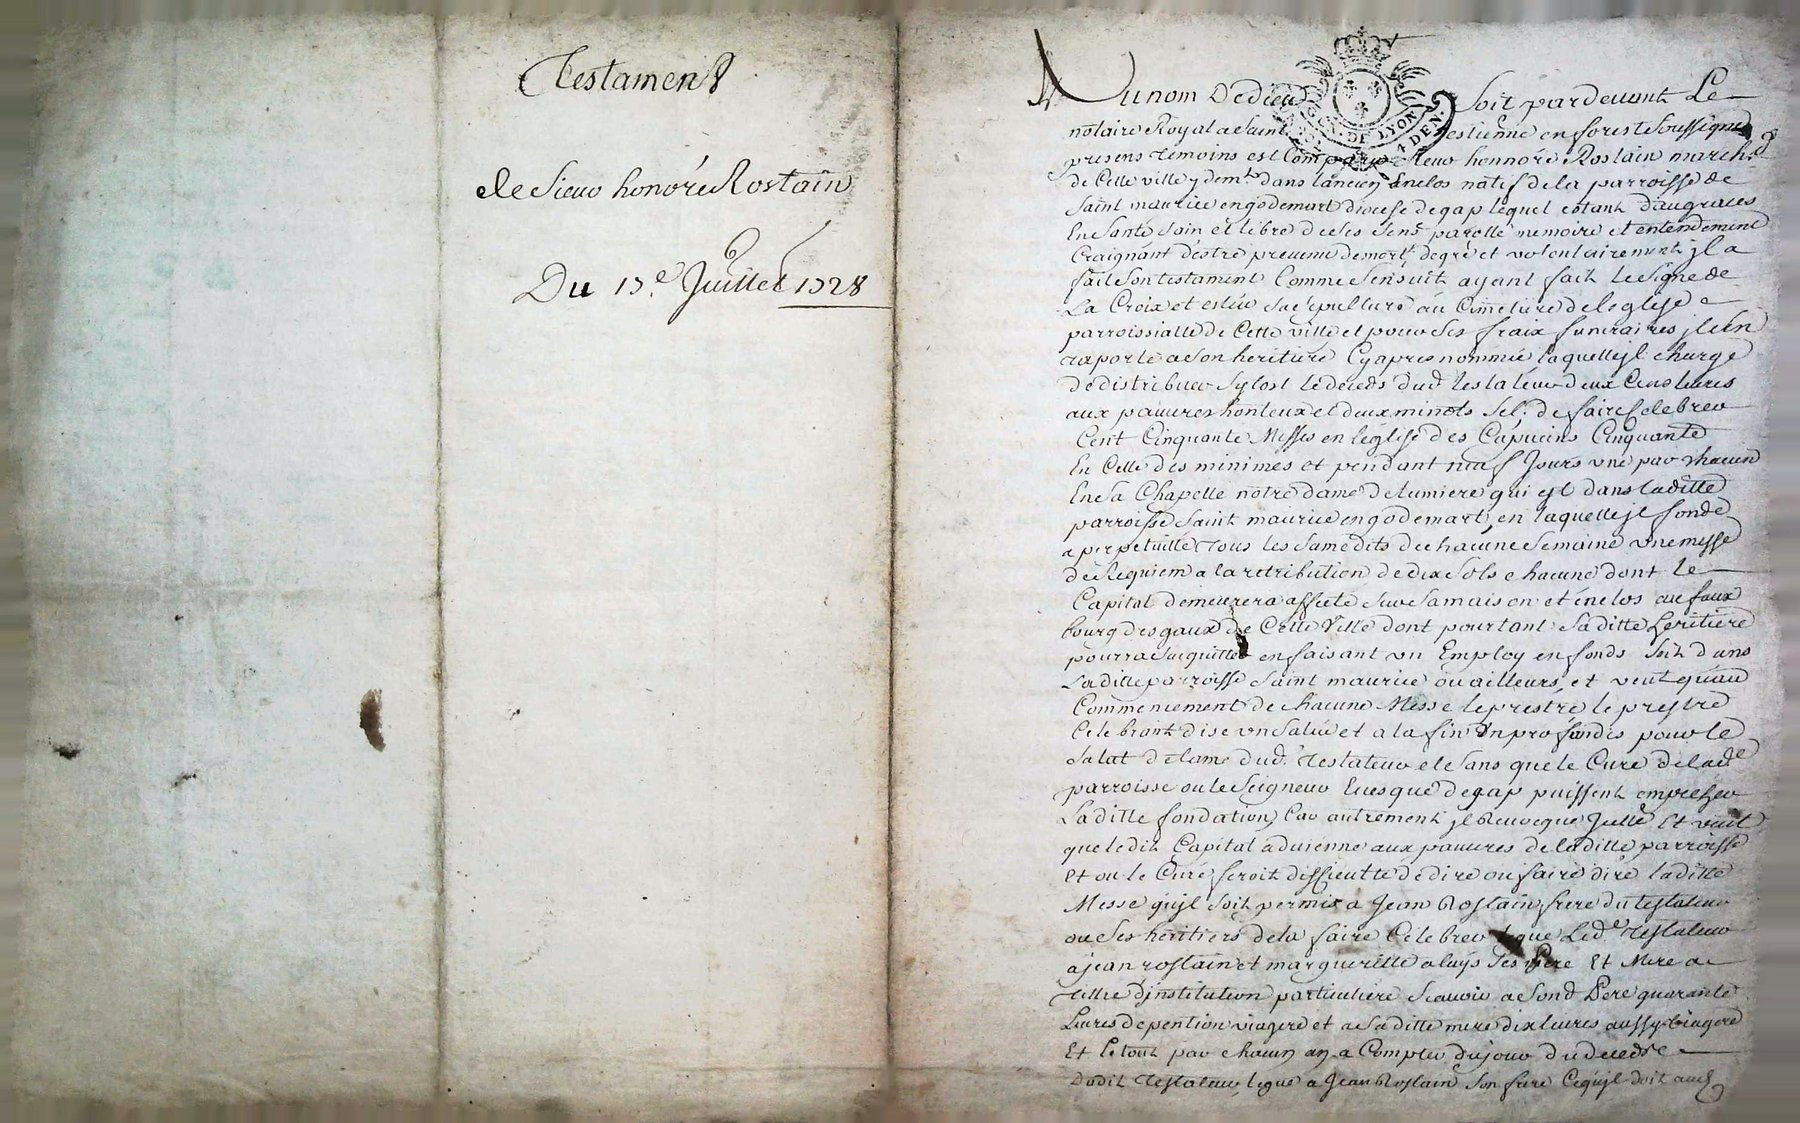 Testament
de Sieur honoré Rostain
Du 17.e Juillet 1728
GEN. DE LYON
4 DEN.
Au nom de dieu Soit pardevant Le
notaire Royal a Saint estienne en forest Soussigné
presens temoins est Comparu Sieur honnoré Rostain march.d
de Cette ville y dem.t dans lancien Enclos natif de la parroisse de
Saint maurice en godemart diocese de gap lequel estant d'augraces
En Santé Sain et libre de ses Sens parolle memoire et entendement
Craignant destre prevenu de mort, de gré et volontairement jl a
fait Son testament Comme Sensuit ayant fait le Signe de
La Croix et esleu Sa Sepulture au Cimetiere de leglise
parroissialle de Cette ville et pour Ses fraix funeraires jl Sen
raporte a Son heritiere Cyapres nommée laquelle jl charge
de distribuer Sytost le deceds dud. testateur deux Cens livres
aux pauvres honteux et deux minots Sel, de faire Celebrer
Cent Cinquante Messes en leglise des Capucins Cinquante
En Celle des minimes et pendant neuf Jours une par chacun
En Sa Chapelle notre dame de lumiere qui est dans laditte
parroisse Saint maurice en godemart, en laquelle jl fonde
a perpetuitté tous les Samedits de chacune Semaine une messe
de Requiem a la retribution de dix Sols chacune dont le
Capital demeurera affecté Sur Sa maison et enclos au faux
bourg des gaux de Cette Ville dont pourtant Saditte heritiere
pourra Saquitter en faisant un Employ en fonds Soit dans
Laditte parroisse Saint maurice ou ailleurs, et veut quau
Commencement de chacune Messe le prestre le prestre
Celebrant dise un Salué et a la fin un profondis pour le
Salut de lame dud. testateur et Sans que le Curé de lad.e
parroisse ou le Seigneur Evesque de gap puissent empecher
Laditte fondation, Car autrement jl Revocque Jcelle Et veut
que ledit Capital advienne aux pauvres de laditte parroisse
Et ou le Curé feroit difficultte de dire ou faire dire laditte
Messe quil Soit permis a Jean Rostain frere du testateur
ou Ses heritiers de la faire Celebrer legue Led.t testateur
a jean rostain et margueritte aluys Ses Pere Et Mere a
tittre djnstitution particuliere Scavoir a Sond Pere quarante
Livres de pention viagere et a Saditte mere dix livres aussy viagere
Et le tout par chacun an a Compter du jour du deceds
Dudit testateur, legue a Jean Rostain Son frere Ce quil doit aud